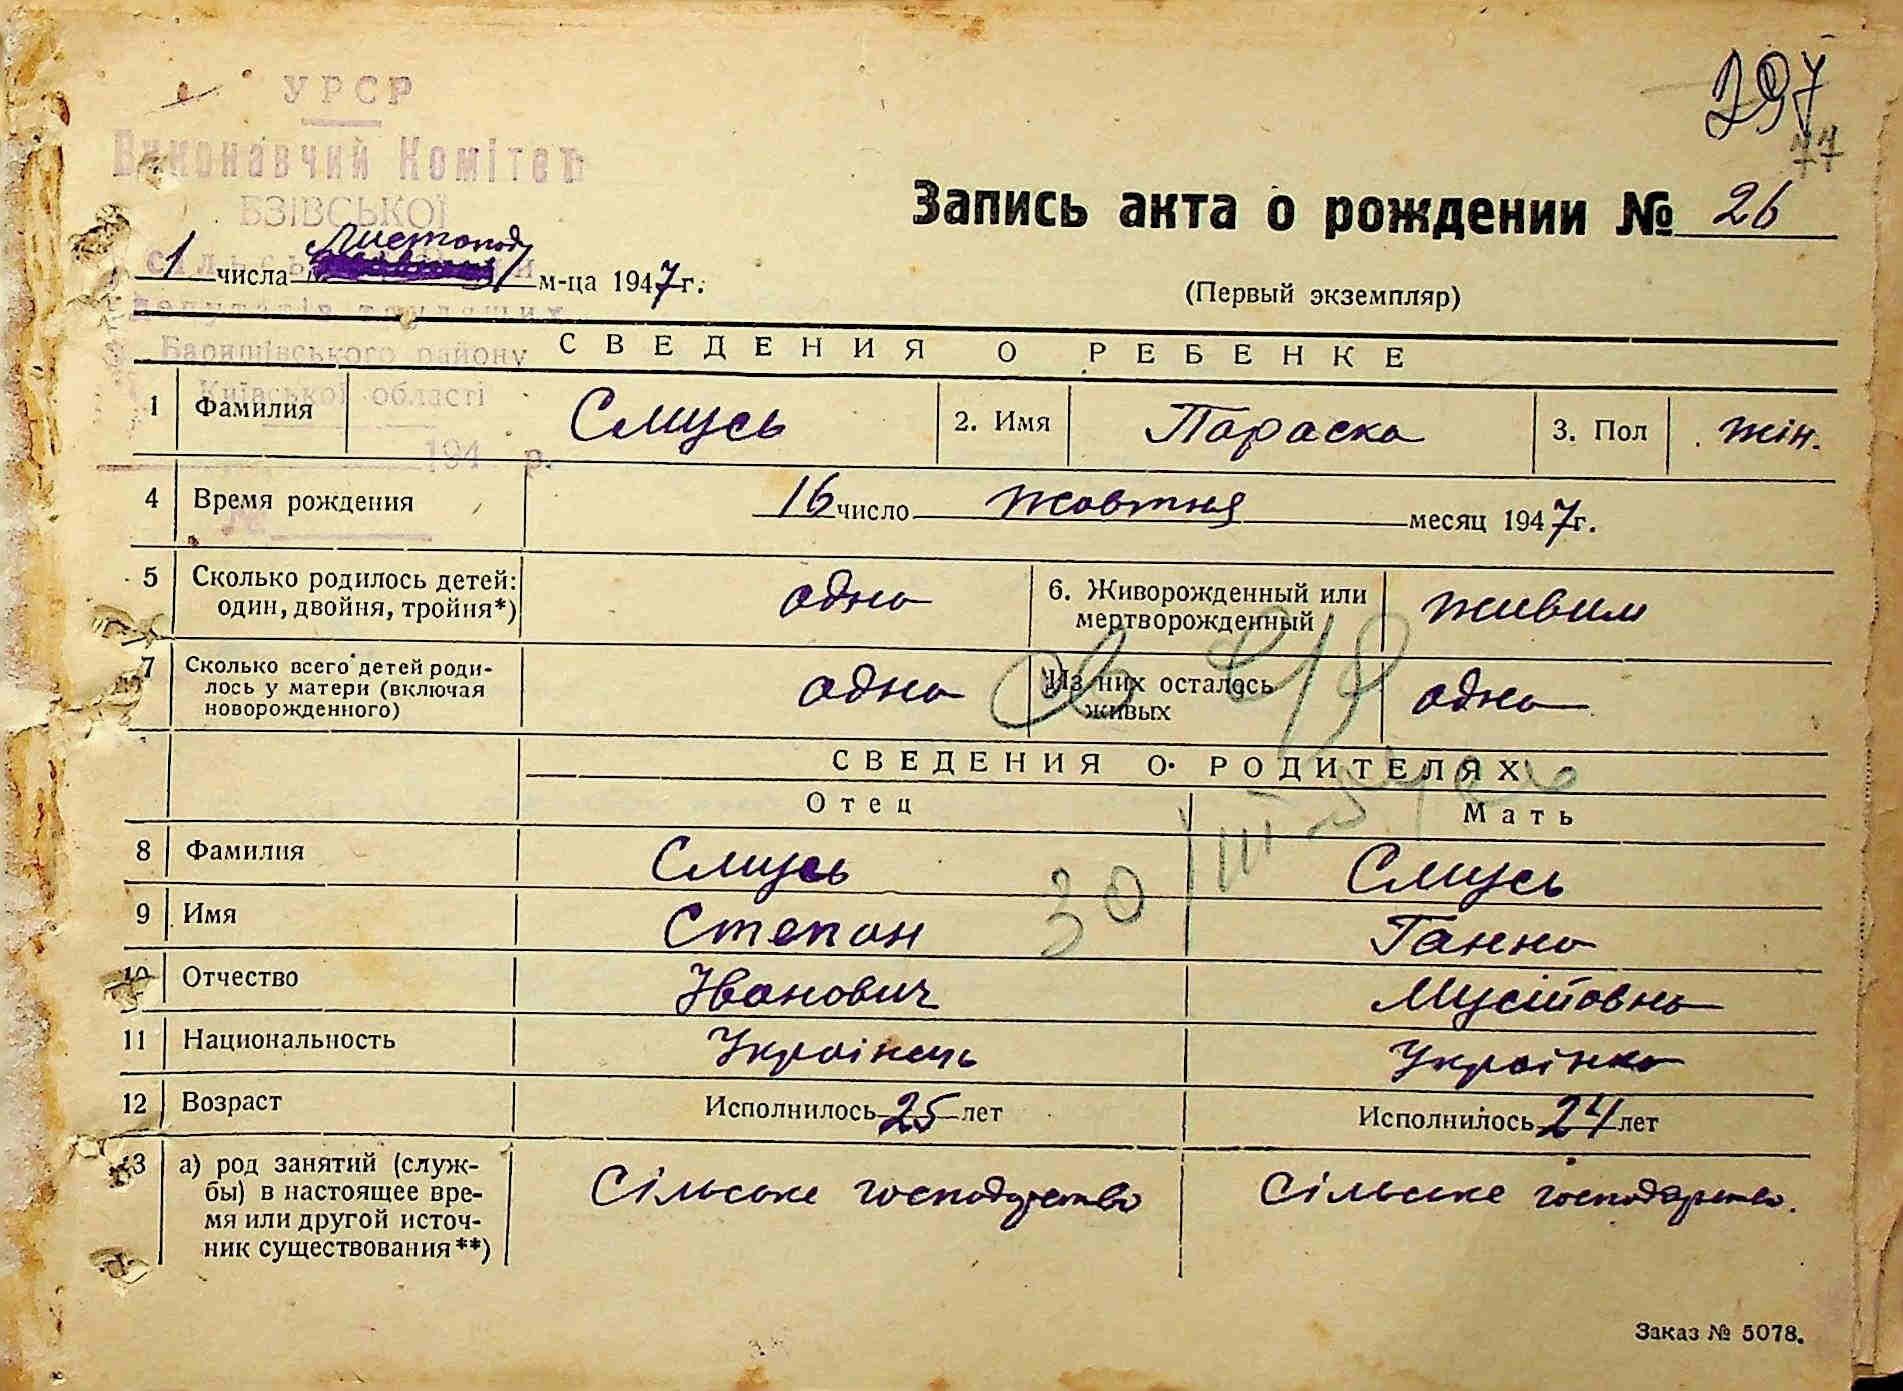 УРСР
Виконавчий Комітет
БЗІВСЬКОЇ
депутатів трудящих
Баришівського району
Київської області
194 р.
№
297
77
Запись акта о рождении № 26
1 числа Листопад м-ца 1947 г.
(Первый экземпляр)
СВЕДЕНИЯ О РЕБЕНКЕ
1 Фамилия Смусь 2. Имя Параска 3. Пол жін.
4 Время рождения 16 число жовтня месяц 1947 г.
5 Сколько родилось детей: один, двойня, тройня*) одно 6. Живорожденный или мертворожденный живим
7 Сколько всего детей роди-
лось у матери (включая
новорожденного) одно Из них осталось живых одно
СВЕДЕНИЯ О РОДИТЕЛЯХ
Отец Мать
8 Фамилия Смусь Смусь
9 Имя Степан Ганна
30/III
10 Отчество Іванович Мусіївна
11 Национальность Українець Українка
12 Возраст Исполнилось 25 лет Исполнилось 24 лет
13 а) род занятий (служ-
бы) в настоящее вре-
мя или другой источ-
ник существования**) Сільське господарство Сільське господарство.
Заказ № 5078.